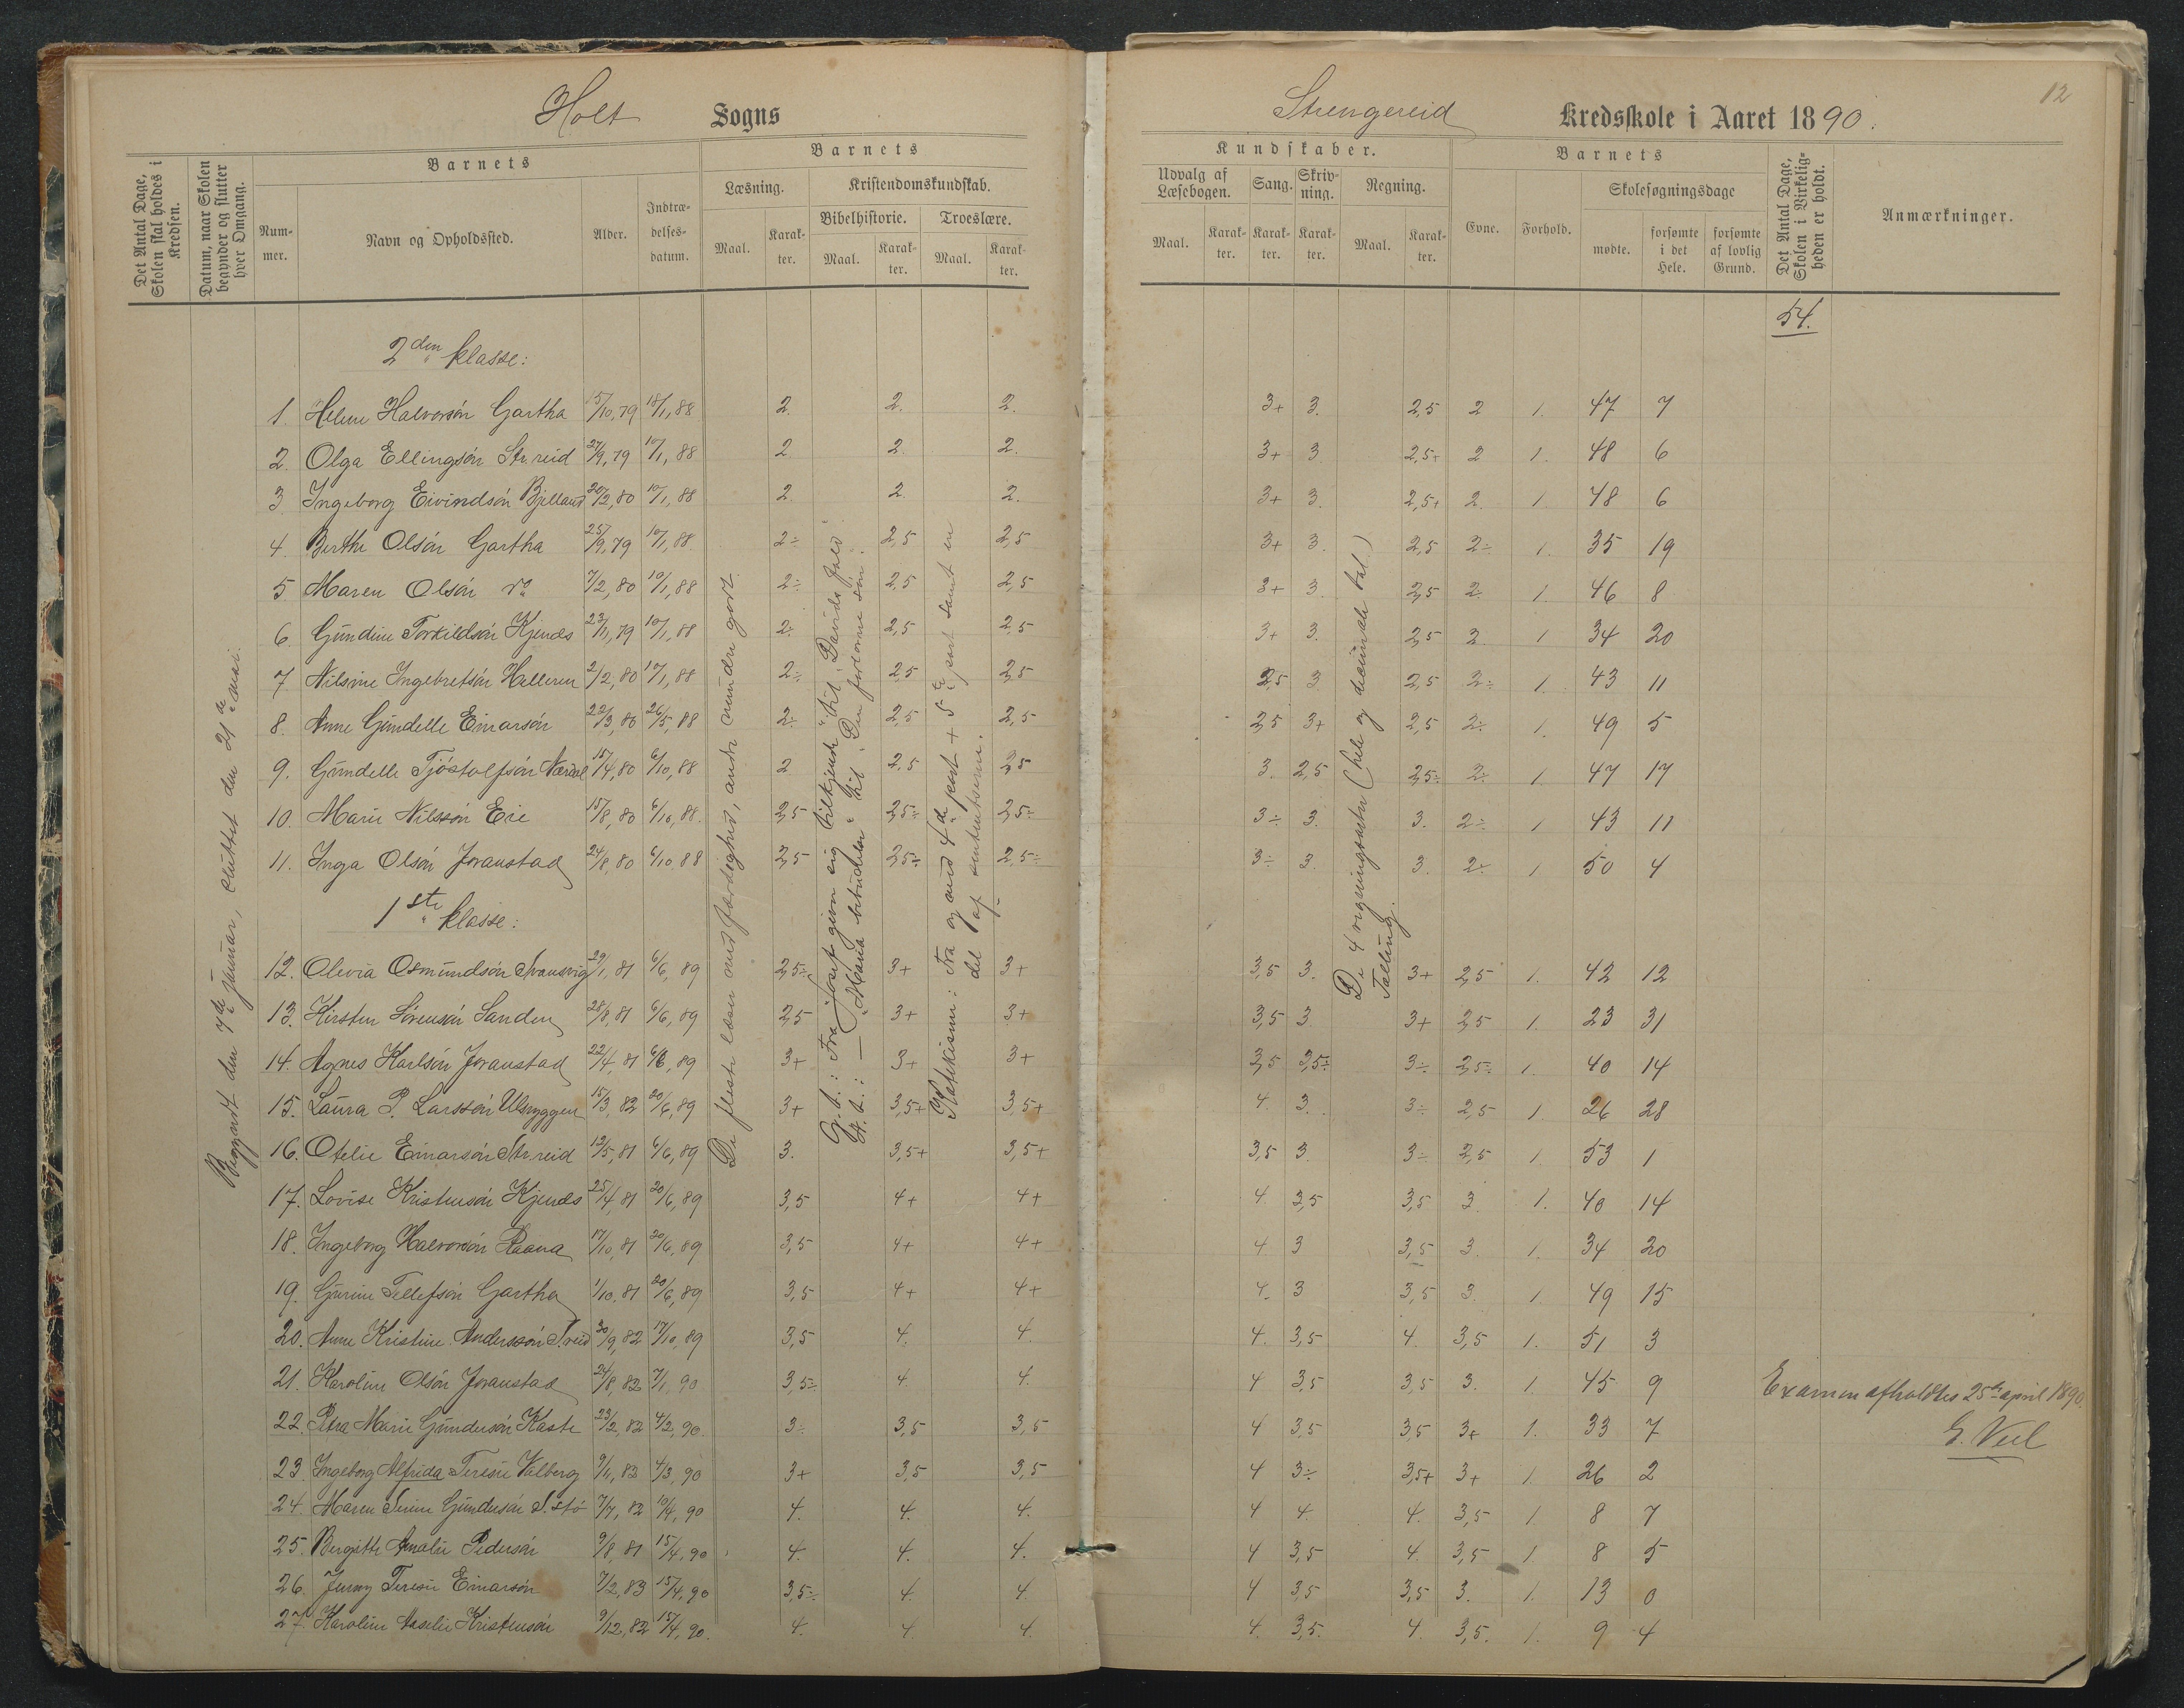 Holt Sogns
Strengereid Kredsskole i Aaret 1890.
12
Det Antal Dage, Skolen skal holdes i Kredsen.
Datum, naar Skolen begynder og slutter hver Omgang.
Barnets
Nummer.
Navn og Opholdssted.
Alder.
Indtrædelsesdatum.
Barnets
Læsning.
Maal.
Karakter.
Kristendomskundskab.
Bibelhistorie.
Maal.
Karakter.
Troeslære.
Maal.
Karakter.
Kundskaber.
Udvalg af Læsebogen.
Maal.
Karakter.
Sang.
Karakter.
Skrivning.
Karakter.
Regning.
Maal.
Karakter.
Barnets
Evne.
Forhold.
Skolesøgningsdage
mødte.
forsømte i det Hele.
forsømte af lovlig Grund.
Det Antal Dage, Skolen i Virkeligheden er holdt.
Anmærkninger.
54.
Begyndt den 7de januar, sluttet den 21de mai.
De fleste læser med færdighed, andre mindre godt.
G. t.: Fra Josef giver sig tilkjende" til "Davids fald".
N. t.: — "Maria bebudelse" til "Den fortorne søn".
Katekisme: Fra og med 4de part + 5te part samt en
del af sentenserne.
De 4 regningsarter (hele og decimale tal.)
Tælling.
2den klasse:
1. Helene Halvorsön Gartha 15/10,79 18/1,88 2. 2. 2. 3+ 3. 2,5 2 1. 47 7
2. Olga Ellingsön Str.reid 27/9,79 10/1,88 2 2. 2. 3+ 3 2,5+ 2 1. 48 6
3. Ingeborg Eivindsön Bjelland 20/2,80 10/1,88 2. 2. 2. 3+ 3. 2,5+ 2. 1. 48 6
4. Berthe Olsön Gartha 25/9,79 10/1,88. 2÷ 2,5 2,5 3+ 3. 2,5 2÷ 1. 35 19
5 Maren Olsön do 7/2,80 10/1,88 2÷ 2,5 2,5 3+ 3. 2,5 2. 1. 46 8
6. Gundine Torkildsön Kjenes 23/11,79 10/1,88 2. 2,5 2,5 3+ 3. 2,5 2. 1 34 20
7 Nilsine Ingebretsön Helleren 2/2,80 10/1,88 2÷ 2,5 2,5 2,5 3 2,5 2÷ 1. 43 11
8. Anne Gundelle Einarsön 22/3,80 26/5,88 2÷ 2,5 2,5 2,5 3+ 2,5 2÷ 1. 49 5
9. Gundelle Tjöstolfsön Nærdal 15/4,80 6/10,88 2 2,5 2,5 3. 2,5 2,5÷ 2÷ 1. 47 17
10. Marie Nilssön Eie 15/8,80 6/10,88. 2,5 2,5÷ 2,5÷ 3÷ 3. 3. 2÷ 1 43 11
11. Inga Olsön Joranstad 24/8,80 6/10 88 2,5 2,5÷ 2,5÷ 3÷ 3. 3. 2÷ 1 50 4
1ste klasse:
12. Olevia Osmundsön Svansvig 29/1,81 6/6,89 2,5÷ 3+ 3+ 3,5 3. 3+ 2,5 1. 42 12
13. Kirsten Sörensön Sanden 28/8,81 6/6,89 2,5 3+ 3+ 3,5 3 3+ 2,5 1. 23 31
14. Agnes Karlsön Joranstad 22/4,81 6/6,89 3+ 3+ 3+ 3,5 2,5÷ 3÷ 2,5÷ 1. 40 14
15. Laura P. Larssön Ulsryggen 15/3,82 20/6,89 3+ 3,5+ 3,5+ 4. 3. 3÷ 2,5 1. 26 28
16. Otelie Einarsön Str.reid 12/5,81 6/6,89 3. 3,5+ 3,5+ 3,5 3. 3÷ 2,5 1. 53 1
17. Lovise Kristensön Kjenes 25/4,81 20/6,89 3,5 4+ 4+ 4 3,5 3,5 3. 1. 40 14
18. Ingeborg Halvorsön Raana 17/10,81 20/6,89 3,5 4+ 4+ 4. 3 3,5 3. 1. 34 20
19. Gurine Tellefsön Gartha 1/10.81 20/6,89 3,5 4+ 4+ 4. 3 3,5 3. 1. 49 15
20. Anne Kristine Anderssön S.reid 30/9,82 17/10,89 3,5 4. 4. 4. 3,5 4. 3,5 1. 51 3
21. Karoline Olsön Joranstad 24/8,82 7/1,90 3,5÷ 4. 4. 4 3,5 3,5 3. 1. 45 9
22. Petra Marie Gundersön Kaste 23/2,82 4/2,90. 3÷ 3,5 3,5 4 3,5 3,5 3+ 1. 33 7
23. Ingeborg Alfrida Teresie Valberg 9/4,83 4/3,90 3+ 3,5 3,5 4 3÷ 3,5+ 3+ 1. 26 2
24. Maren Serine Gundersön S.stö 7/7,82 10/4,90 4. 4. 4. 4 4. 4. 3,5 1. 8 7
25. Bergitte Amalie Pedersön 9/8,81 15/4,90 4. 4. 4. 4 3,5 4. 3,5 1 8 5
26. Jenny Teresie Einarsön 7/2,83 15/4,90 3,5÷ 4. 4. 4 3,5 3,5 3. 1. 13 0
27. Karoline Vasilie Kristensön 9/12,82 15/4,90. 4. 4. 4. 4. 3,5. 4. 3,5. 1. 9 4
Examen afholdtes 25de april 1890.
G. Veel